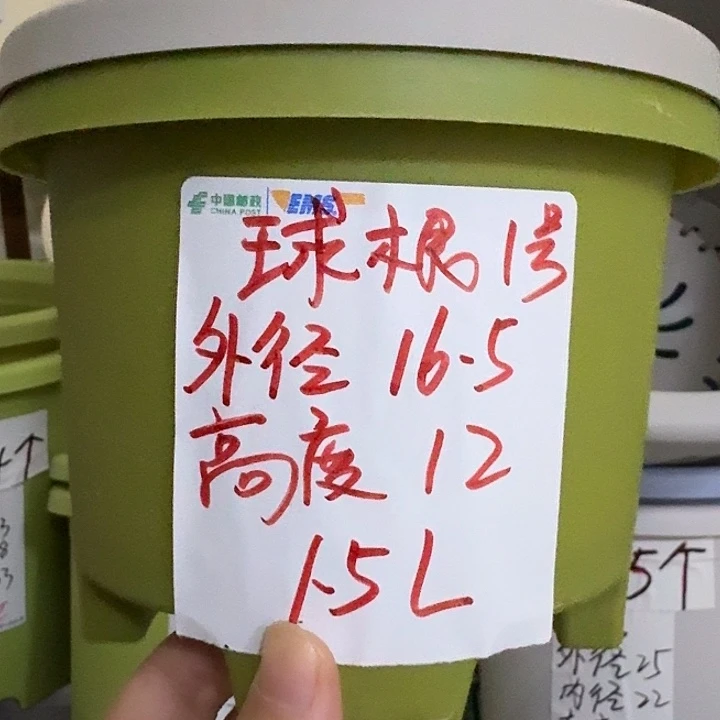 中国邮政
CHINA POST
EMS
球根 1号
外径 16.5
高度 12
1.5L
个
5个
外径 25
内径 22